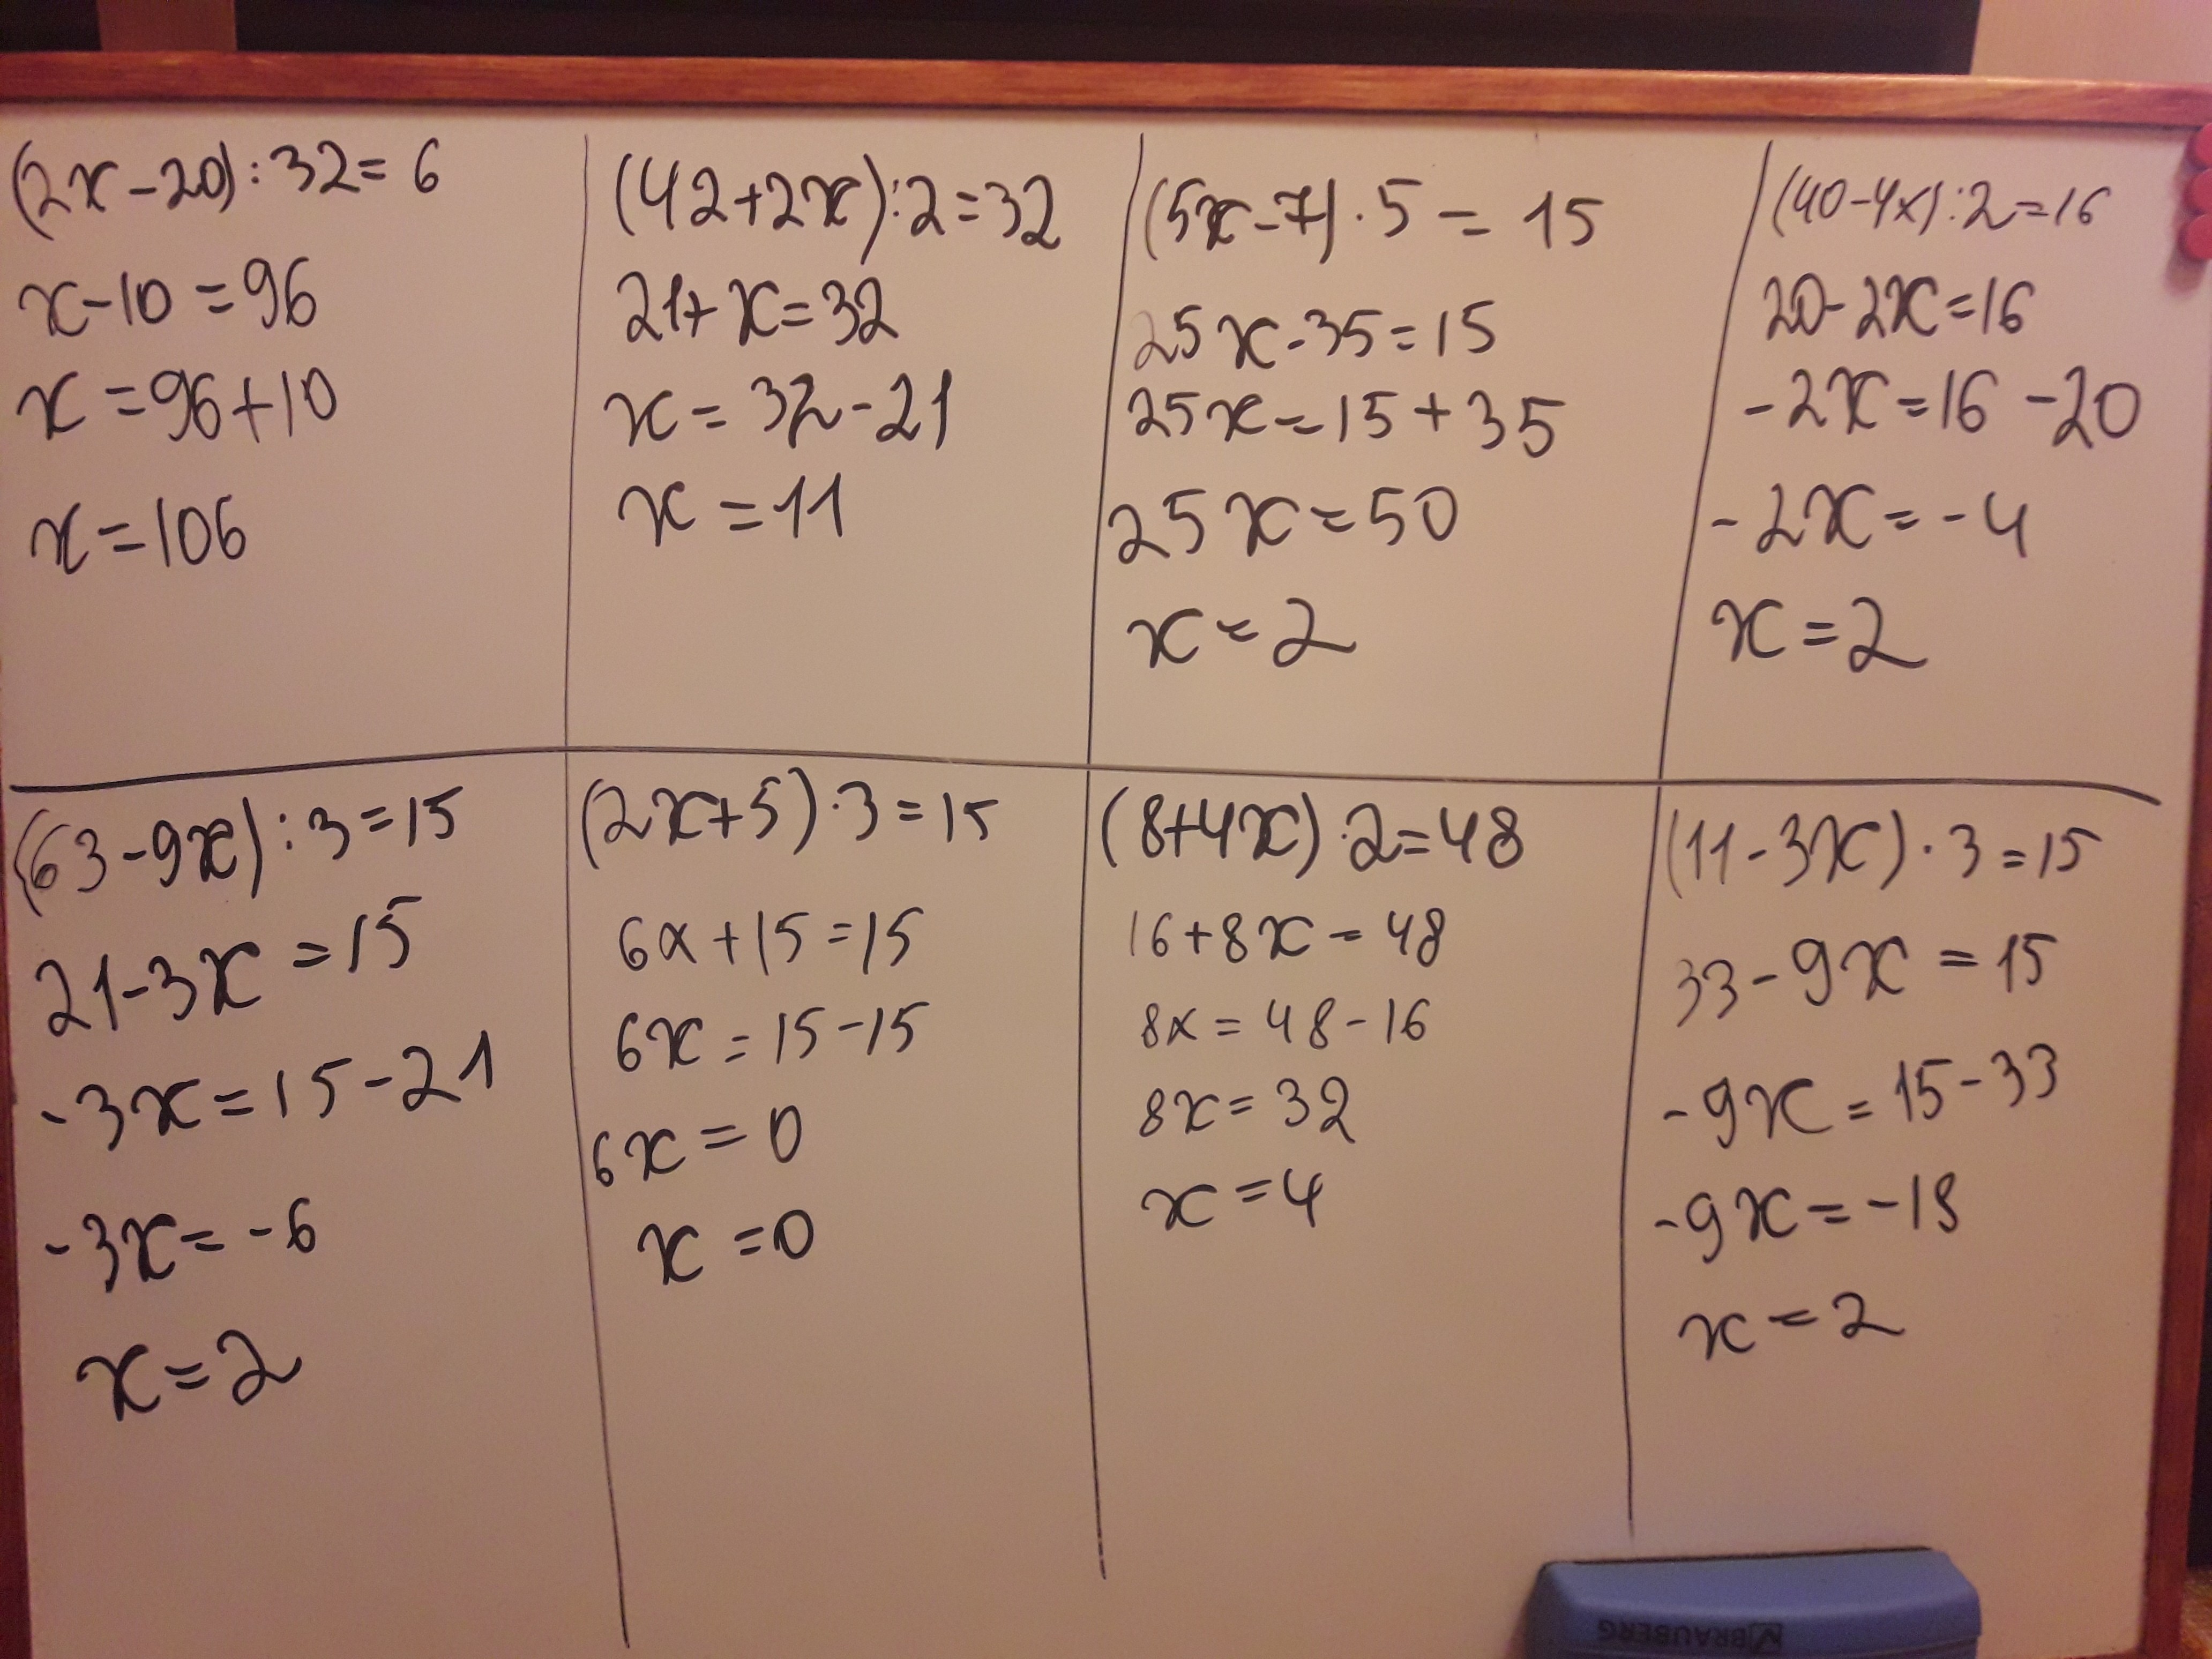 (2x-20):32=6
x-10=96
x=96+10
x=106
(42+2x):2=32
21+x=32
x=32-21
x=11
(5x-7)·5=15
25x-35=15
25x=15+35
25x=50
x=2
(40-4x):2=16
20-2x=16
-2x=16-20
-2x=-4
x=2
(63-9x):3=15
21-3x=15
-3x=15-21
-3x=-6
x=2
(2x+5)·3=15
6x+15=15
6x=15-15
6x=0
x=0
(8+4x)·2=48
16+8x=48
8x=48-16
8x=32
x=4
(11-3x)·3=15
33-9x=15
-9x=15-33
-9x=-18
x=2
BRAUBERG